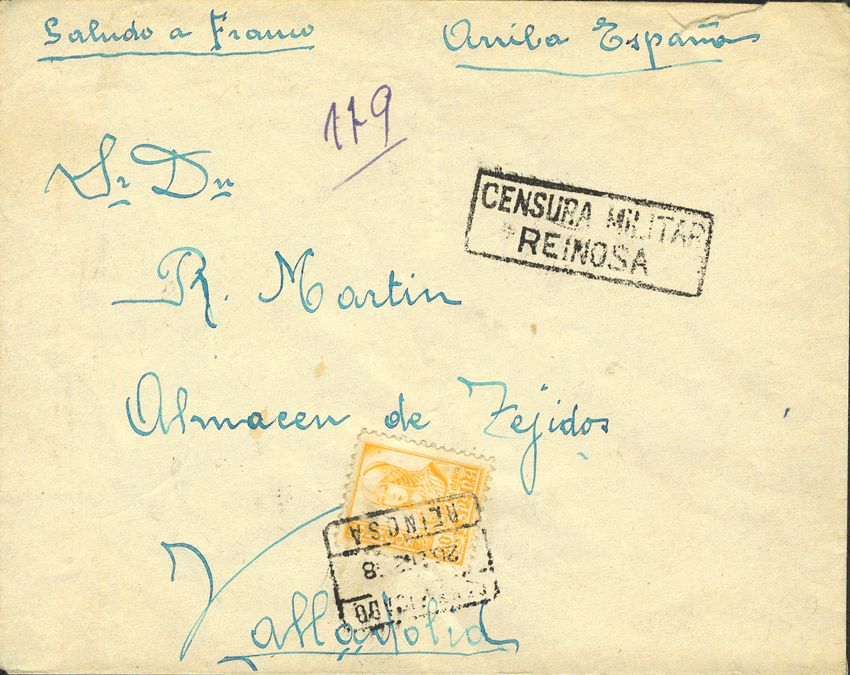 Saludo a Franco Arriba España
179
Sr Dn
CENSURA MILITAR
REINOSA
R. Martin
Almacen de Tejidos
REINOSA
Valladolid